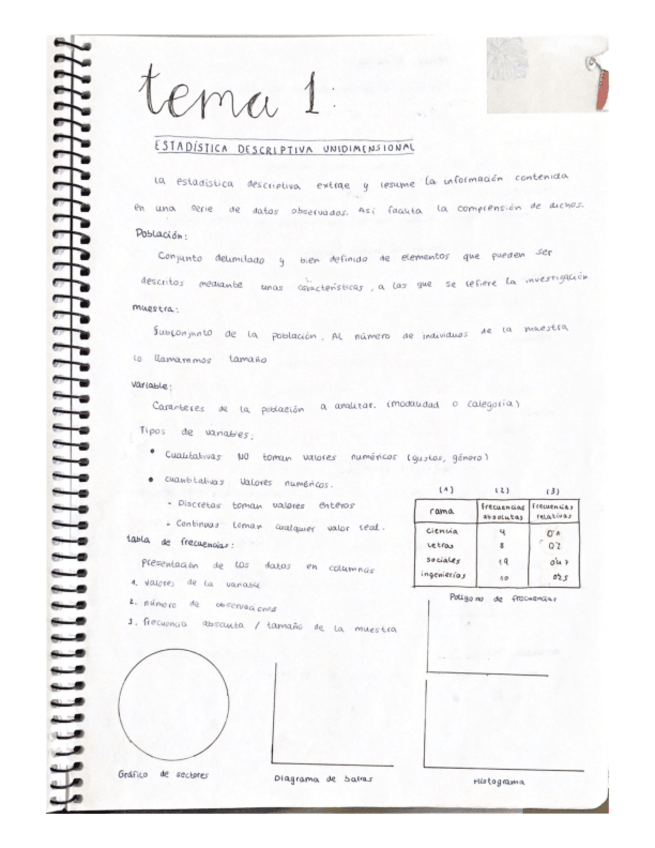 tema 1:
ESTADÍSTICA DESCRIPTIVA UNIDIMENSIONAL
La estadística descriptiva extrae y resume la información contenida
en una serie de datos observados. Así facilita la comprensión de dichos.
Población:
Conjunto delimitado y bien definido de elementos que pueden ser
descritos mediante unas características, a las que se refiere la investigación
muestra:
Subconjunto de la población. Al número de individuos de la muestra
lo llamaremos tamaño
variable:
Caracteres de la población a analizar. (modalidad o categoría)
Tipos de variables:
• Cualitativas NO toman valores numéricos (gustos, género)
• cuantitativas Valores numéricos.
- Discretas toman valores enteros
- Continuas toman cualquier valor real.
tabla de frecuencias:
presentación de los datos en columnas
1. valores de la variable
2. número de observaciones
3. frecuencia absoluta / tamaño de la muestra
(1) (2) (3)
rama frecuencias absolutas frecuencias relativas
ciencia 4 0'1
letras 8 0'2
sociales 19
ingenierías 10 0'25
Polígono de frecuencias
Gráfico de sectores
Diagrama de barras
Histograma